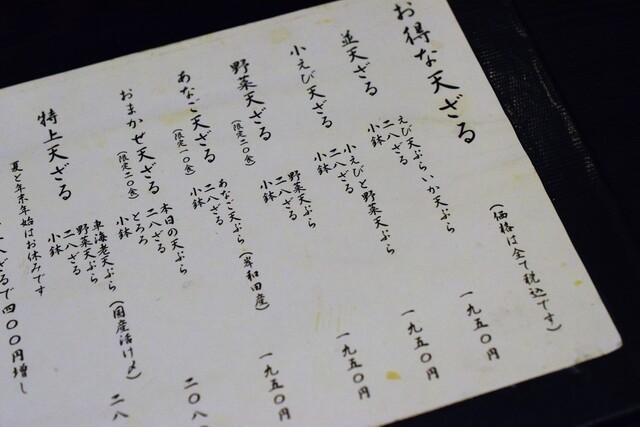 お得な天ざる
（価格は全て税込です）
並天ざる
えび天ぷら、いか天ぷら
二八ざる
小鉢
一九五〇円
小えび天ざる
小えびと野菜天ぷら
二八ざる
小鉢
一九五〇円
野菜天ざる
（限定二〇食）
野菜天ぷら
二八ざる
小鉢
一九五〇円
あなご天ざる
（限定一〇食）
あなご天ぷら（岸和田産）
二八ざる
小鉢
一九五〇円
おまかせ天ざる
（限定二〇食）
本日の天ぷら
二八ざる
とろろ
小鉢
二〇八
特上天ざる
車海老天ぷら（国産活け〆）
野菜天ぷら
二八ざる
小鉢
二八
夏と年末年始はお休みです
八ざるで四〇〇円増し